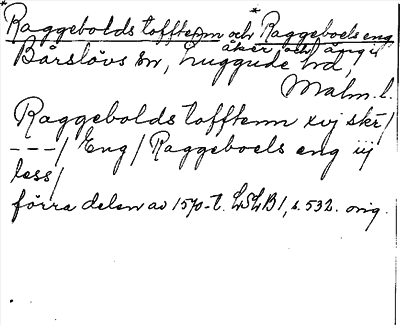 *Raggebolds tofftenn och *Raggeboels eng
åker och äng i
Bårslövs sn, Luggude hd,
Malm. l.
Raggebolds tofftenn xvj skr/
---/ Eng/ Raggeboels eng iij
less/
förra delen av 1570-t. LSLB1, s. 532. orig.